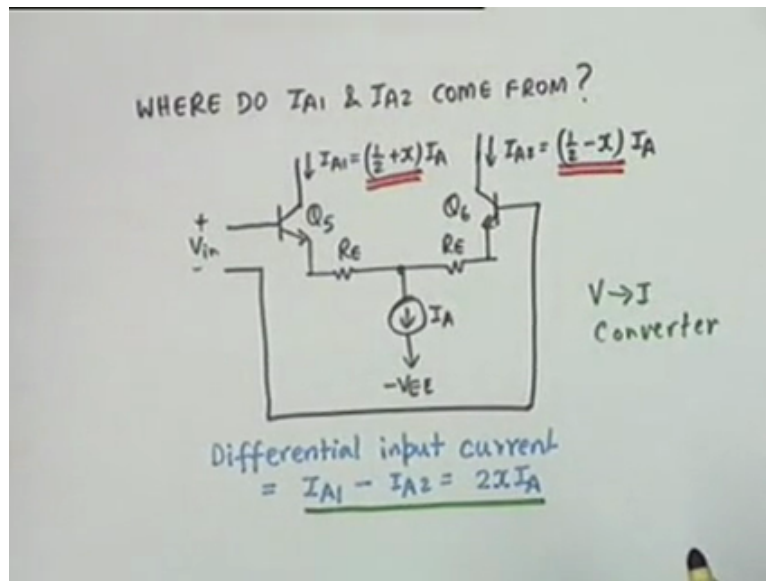 WHERE DO IA1 & IA2 COME FROM?
IA1 = (1/2 + x) IA
IA2 = (1/2 - x) IA
Q5
Q6
+
Vin
-
RE
RE
IA
-VEE
V→I
Converter
Differential input current
= IA1 - IA2 = 2xIA